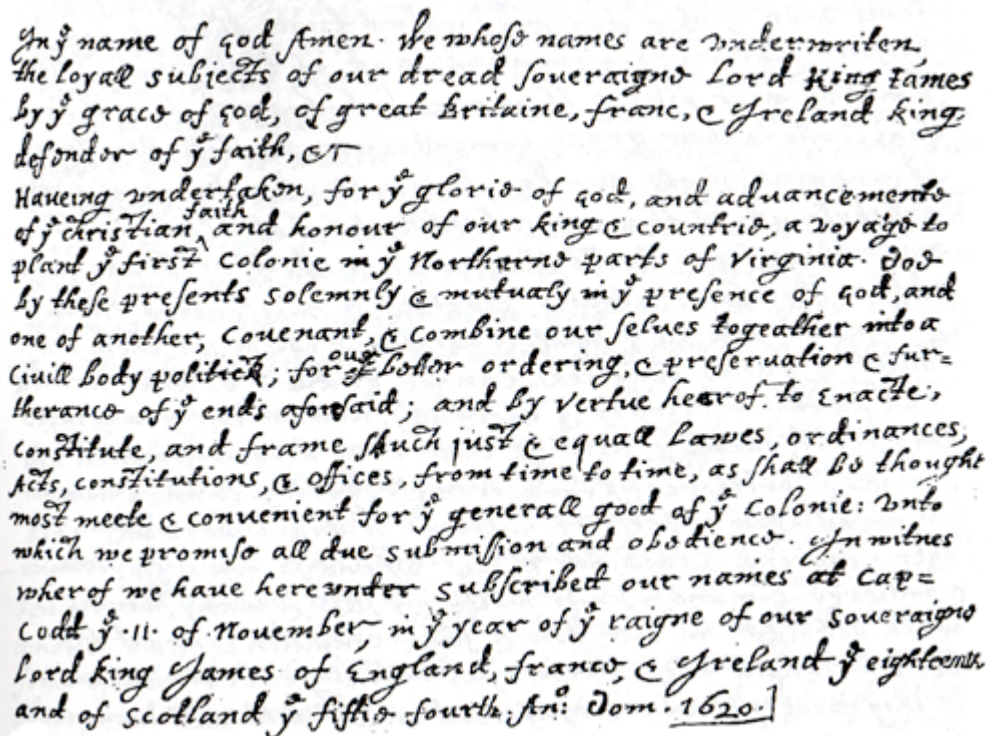 In yͤ name of god Amen. We whose names are vnderwriten,
the loyall subjects of our dread soveraigne Lord King Iames
by yͤ grace of god, of great Britaine, franc, & Ireland king,
defender of yͤ faith, &c
Haveing vndertaken, for yͤ glorie of god, and advancemente
of yͤ christian faith and honour of our king & countrie, a voyage to
plant yͤ first Colonie in yͤ Northerne parts of Virginia. Doe
by these presents solemnly & mutualy in yͤ presence of god, and
one of another, Covenant, & combine our selves togeather into a
Civill body politick; for our better ordering, & preservation & fur=
therance of yͤ ends aforesaid; and by vertue hearof to Enacte,
constitute, and frame shuch just & equall Lawes, ordinances,
Acts, constitutions, & offices, from time to time, as shall be thought
most meete & convenient for yͤ generall good of yͤ Colonie: vnto
which we promise all due submission and obedience. In witnes
wherof we have hereunder subscribed our names at Cap=
Codd yͤ .11. of November, in yͤ year of yͤ raigne of our soveraigne
Lord king James of England, france, & Ireland yͤ eighteenth
and of Scotland yͤ fiftie fourth. Anº: Dom. 1620.]